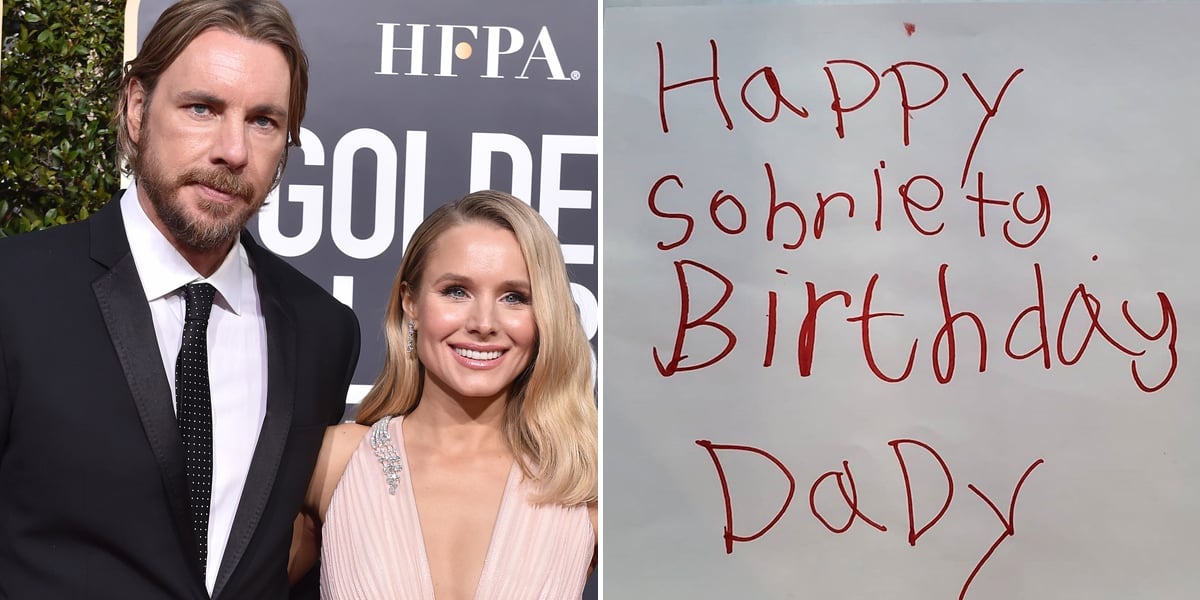 HFPA®
GOLDE
Happy
sobriety
Birthday
DaDy